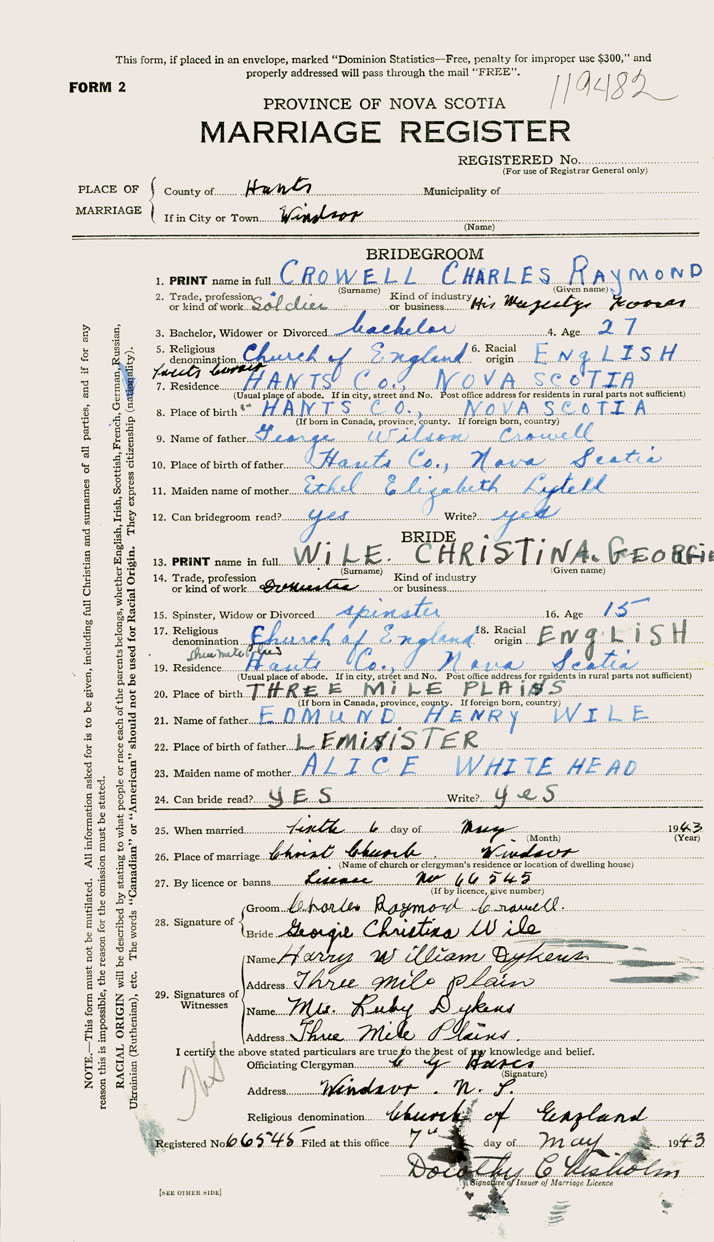 This form, if placed in an envelope, marked "Dominion Statistics—Free, penalty for improper use $300," and
properly addressed will pass through the mail "FREE".
FORM 2
119482
PROVINCE OF NOVA SCOTIA
MARRIAGE REGISTER
REGISTERED No.
(For use of Registrar General only)
PLACE OF MARRIAGE
County of Hants Municipality of
If in City or Town Windsor
(Name)
BRIDEGROOM
1. PRINT name in full CROWELL CHARLES RAYMOND
(Surname) (Given name)
2. Trade, profession or kind of work Soldier Kind of industry or business His Majestys Forces
3. Bachelor, Widower or Divorced bachelor 4. Age 27
5. Religious denomination Church of England 6. Racial origin ENGLISH
7. Residence HANTS CO., NOVA SCOTIA
(Usual place of abode. If in city, street and No. Post office address for residents in rural parts not sufficient)
8. Place of birth HANTS CO., NOVA SCOTIA
(If born in Canada, province, county. If foreign born, country)
9. Name of father George Wilson Crowell
10. Place of birth of father Hants Co., Nova Scotia
11. Maiden name of mother Ethel Elizabeth Lytell
12. Can bridegroom read? yes Write? yes
BRIDE
13. PRINT name in full WILE. CHRISTINA. GEORGIE
(Surname) (Given name)
14. Trade, profession or kind of work Domestic Kind of industry or business
15. Spinster, Widow or Divorced spinster 16. Age 15
17. Religious denomination Church of England 18. Racial origin ENGLISH
Three Mile Plains
19. Residence Hants Co., Nova Scotia
(Usual place of abode. If in city, street and No. Post office address for residents in rural parts not sufficient)
20. Place of birth THREE MILE PLAINS
(If born in Canada, province, county. If foreign born, country)
21. Name of father EDMUND HENRY WILE
22. Place of birth of father LEMINISTER
23. Maiden name of mother ALICE WHITEHEAD
24. Can bride read? YES Write? yes
25. When married sixth 6 day of May 1943
(Month) (Year)
26. Place of marriage Christ Church. Windsor
(Name of church or clergyman's residence or location of dwelling house)
27. By licence or banns License No 66545
(If by licence, give number)
28. Signature of
Groom Charles Raymond Crowell.
Bride Georgie Christina Wile
29. Signatures of Witnesses
Name Harry William Dykens
Address Three mile plain
Name Mrs. Ruby Dykens
Address Three Mile Plains.
I certify the above stated particulars are true to the best of my knowledge and belief.
Officiating Clergyman
(Signature)
Address Windsor. N. S.
Religious denomination Church of England
Registered No. 66545 Filed at this office 7 day of May 1943
Dorothy C Chisholm
Signature of Issuer of Marriage Licence
[SEE OTHER SIDE]
NOTE.—This form must not be mutilated. All information asked for is to be given, including full Christian and surnames of all parties, and if for any
reason this is impossible, the reason for the omission must be stated.
RACIAL ORIGIN will be described by stating to what people or race each of the parents belongs, whether English, Irish, Scottish, French, German, Russian,
Ukrainian (Ruthenian), etc. The words "Canadian" or "American" should not be used for Racial Origin. They express citizenship (nationality).